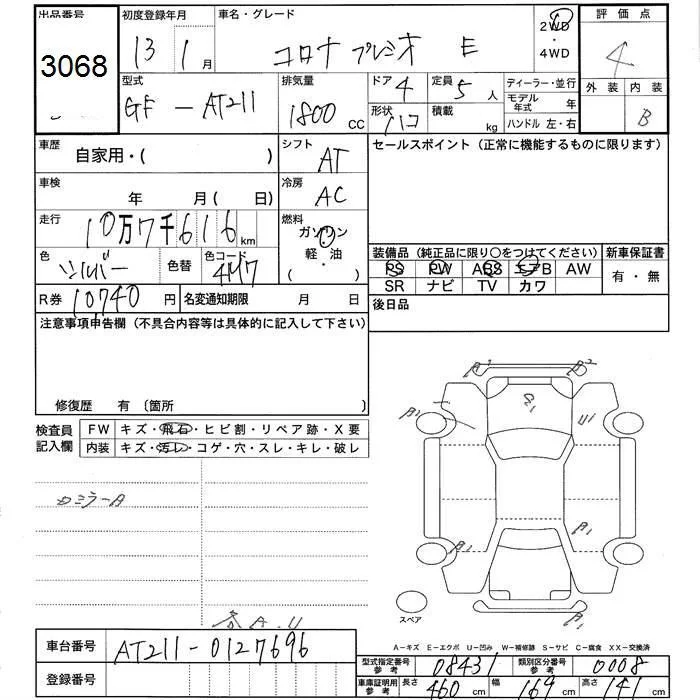 出品番号 初度登録年月 車名・グレード 2WD 評価点
3068 13 1月 コロナプレミオ E ・4WD 4
型式 排気量 ドア 4 定員 5 人 ディーラー・並行 外装 内装
GF-AT211 1800 CC 形状 ハコ 積載 kg モデル年式 年 B
ハンドル 左・右
車歴 自家用・( ) シフト AT セールスポイント(正常に機能するものに限ります)
車検 年 月 ( 日) 冷房 AC
走行 10万7千616km 燃料 ガソリン
軽・油
( )
色 シルバー 色替 色コード 4M7 装備品(純正品に限り〇をつけてください) 新車保証書
PS PW ABS エアB AW 有・無
SR ナビ TV カワ
R券 10740円 名変通知期限 月 日 後日品
注意事項申告欄(不具合内容等は具体的に記入して下さい)
修復歴 有 〔箇所 〕
検査員記入欄 FW キズ・飛石・ヒビ割・リペア跡・X要
内装 キズ・汚レ・コゲ・穴・スレ・キレ・破レ
ミラーA
A.U
スペア
A-キズ E-エクボ U-凹み W-補修跡 S-サビ C-腐食 XX-交換済
車台番号 AT211-0127696
型式指定番号参考 08431 類別区分番号参考 0008
登録番号 車庫証明用参考 長さ 460cm 幅 169cm 高さ 141cm